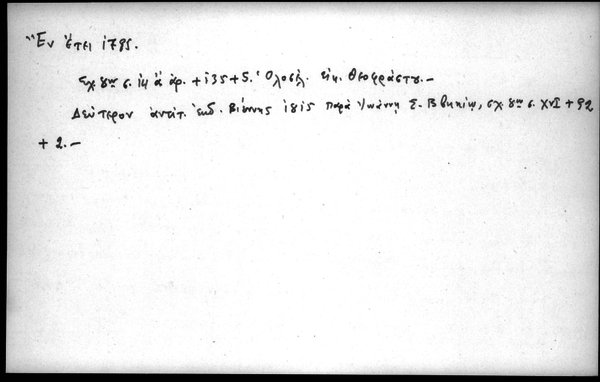 "Ἐν ἔτει 1795.
Σχ. 8ον σ. ιη ἄ ἀρ. + 135 + 5. Ὁλοσέλ. εἰκ. Θεοφράστου.-
Δεύτερον ἀντίτ. ἐκδ. Βιέννης 1815 παρὰ Ἰωάννῃ Σ. , σχ. 8ον σ. XVI + 92
+ 2.-